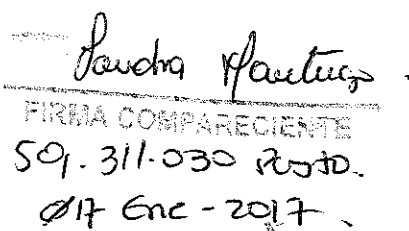 Sandra
FIRMA COMPARECIENTE
59.311.030 Pasto.
017 Ene - 2017.